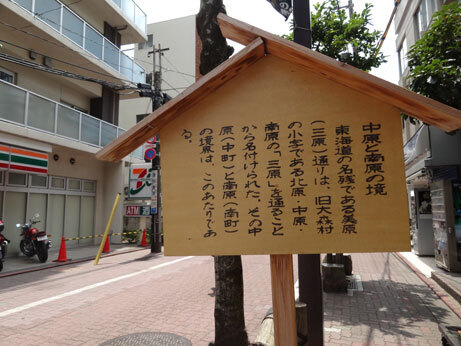 中原と南原の境
東海道の名残である美原
(三原)通りは、旧大森村
の小字である北原・中原・
南原の、三原を通ること
から名付けられた。その中
原(中町)と南原(南町)
の境界は、このあたりであ
る。
ATM